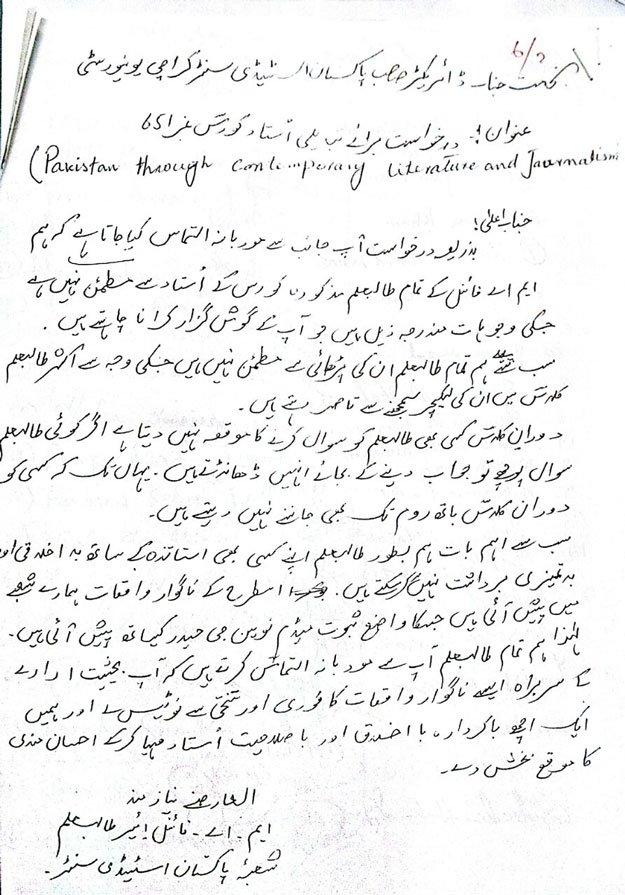 6/2
بخدمت جناب ڈائریکٹر صاحب پاکستان اسٹیڈی سنٹر کراچی یونیورسٹی
عنوان: درخواست برائے تبدیلی اُستاد کورس نمبر 651
(Pakistan through Contemporary Literature and Journalism
جناب اعلیٰ!
بذریعہ درخواست آپ جناب سے مودبانہ التماس کیا جاتا ہے کہ ہم
ایم اے فائنل کے تمام طالبعلم مذکورہ کورس کے اُستاد سے مطمئن نہیں ہے
جسکی وجوہات مندرجہ ذیل ہیں جو آپ کے گوش گزار کرانا چاہتے ہیں۔
سب سے ہم تمام طالبعلم ان کی پڑھائی سے مطمئن نہیں ہیں جسکی وجہ سے اکثر طالبعلم
کلاس میں ان کی لیکچر سمجھنے سے قاصر رہتے ہیں۔
دوران کلاس کسی بھی طالبعلم کو سوال کرنے کا موقعہ نہیں دیتا ہے اگر کوئی طالبعلم
سوال پوچھے تو جواب دینے کے بجائے انہیں ڈھانٹتے ہیں۔ یہاں تک کہ کسی کو
دوران کلاس باتھ روم تک بھی جانے نہیں دیتے ہیں۔
سب سے اہم بات ہم بطور طالبعلم اپنے کسی بھی استاتذہ کے ساتھ بد اخلاقی اور
بدتمیزی برداشت نہیں کر سکتے ہیں۔ اسطرح کے ناگوار واقعات ہمارے شعبے
میں پیش آئی ہیں جسکا واضع ثبوت میڈم نوین جی حیدر کیساتھ پیش آئی ہیں۔
لہٰذا ہم تمام طالبعلم آپ سے مودبانہ التماس کرتے ہیں کہ آپ بحیثیت ادارے
کے سربراہ ایسے ناگوار واقعات کا فوری اور سختی سے نوٹیس لے اور ہمیں
ایک اچھے باکردار، با اخلاق اور باصلاحیت اُستاد مہیا کرکے احسان مندی
کا موقع بخش دے۔
العارضے نیاز مند
ایم۔ اے۔ فائنل ائیر طالبعلم
شعبۂ پاکستان اسٹیڈی سنٹر۔